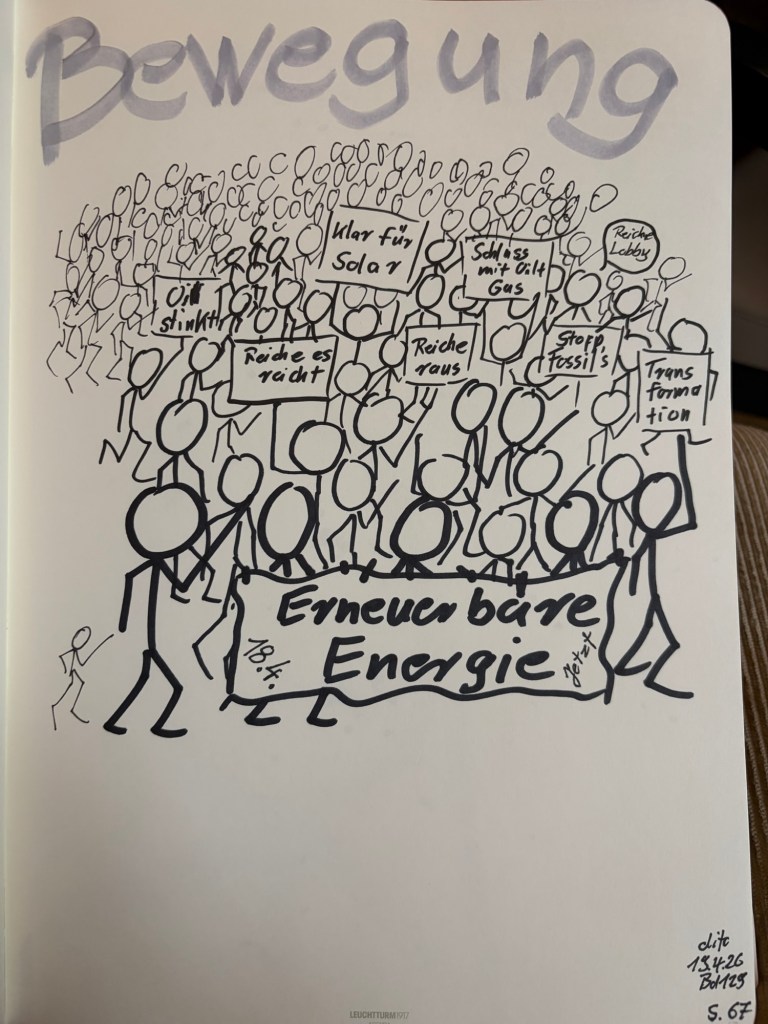 Bewegung
Klar für
Solar
Schluss
mit Öil+
Gas
Reiche
Lobby
Oil
stinkt
Reiche es
reicht
Reiche
raus
Stopp
Fossil's
Trans
forma
tion
Erneuerbare
Energie
18.4.
Jetzt
dito
19.4.26
Bd129
S. 67
LEUCHTTURM1917